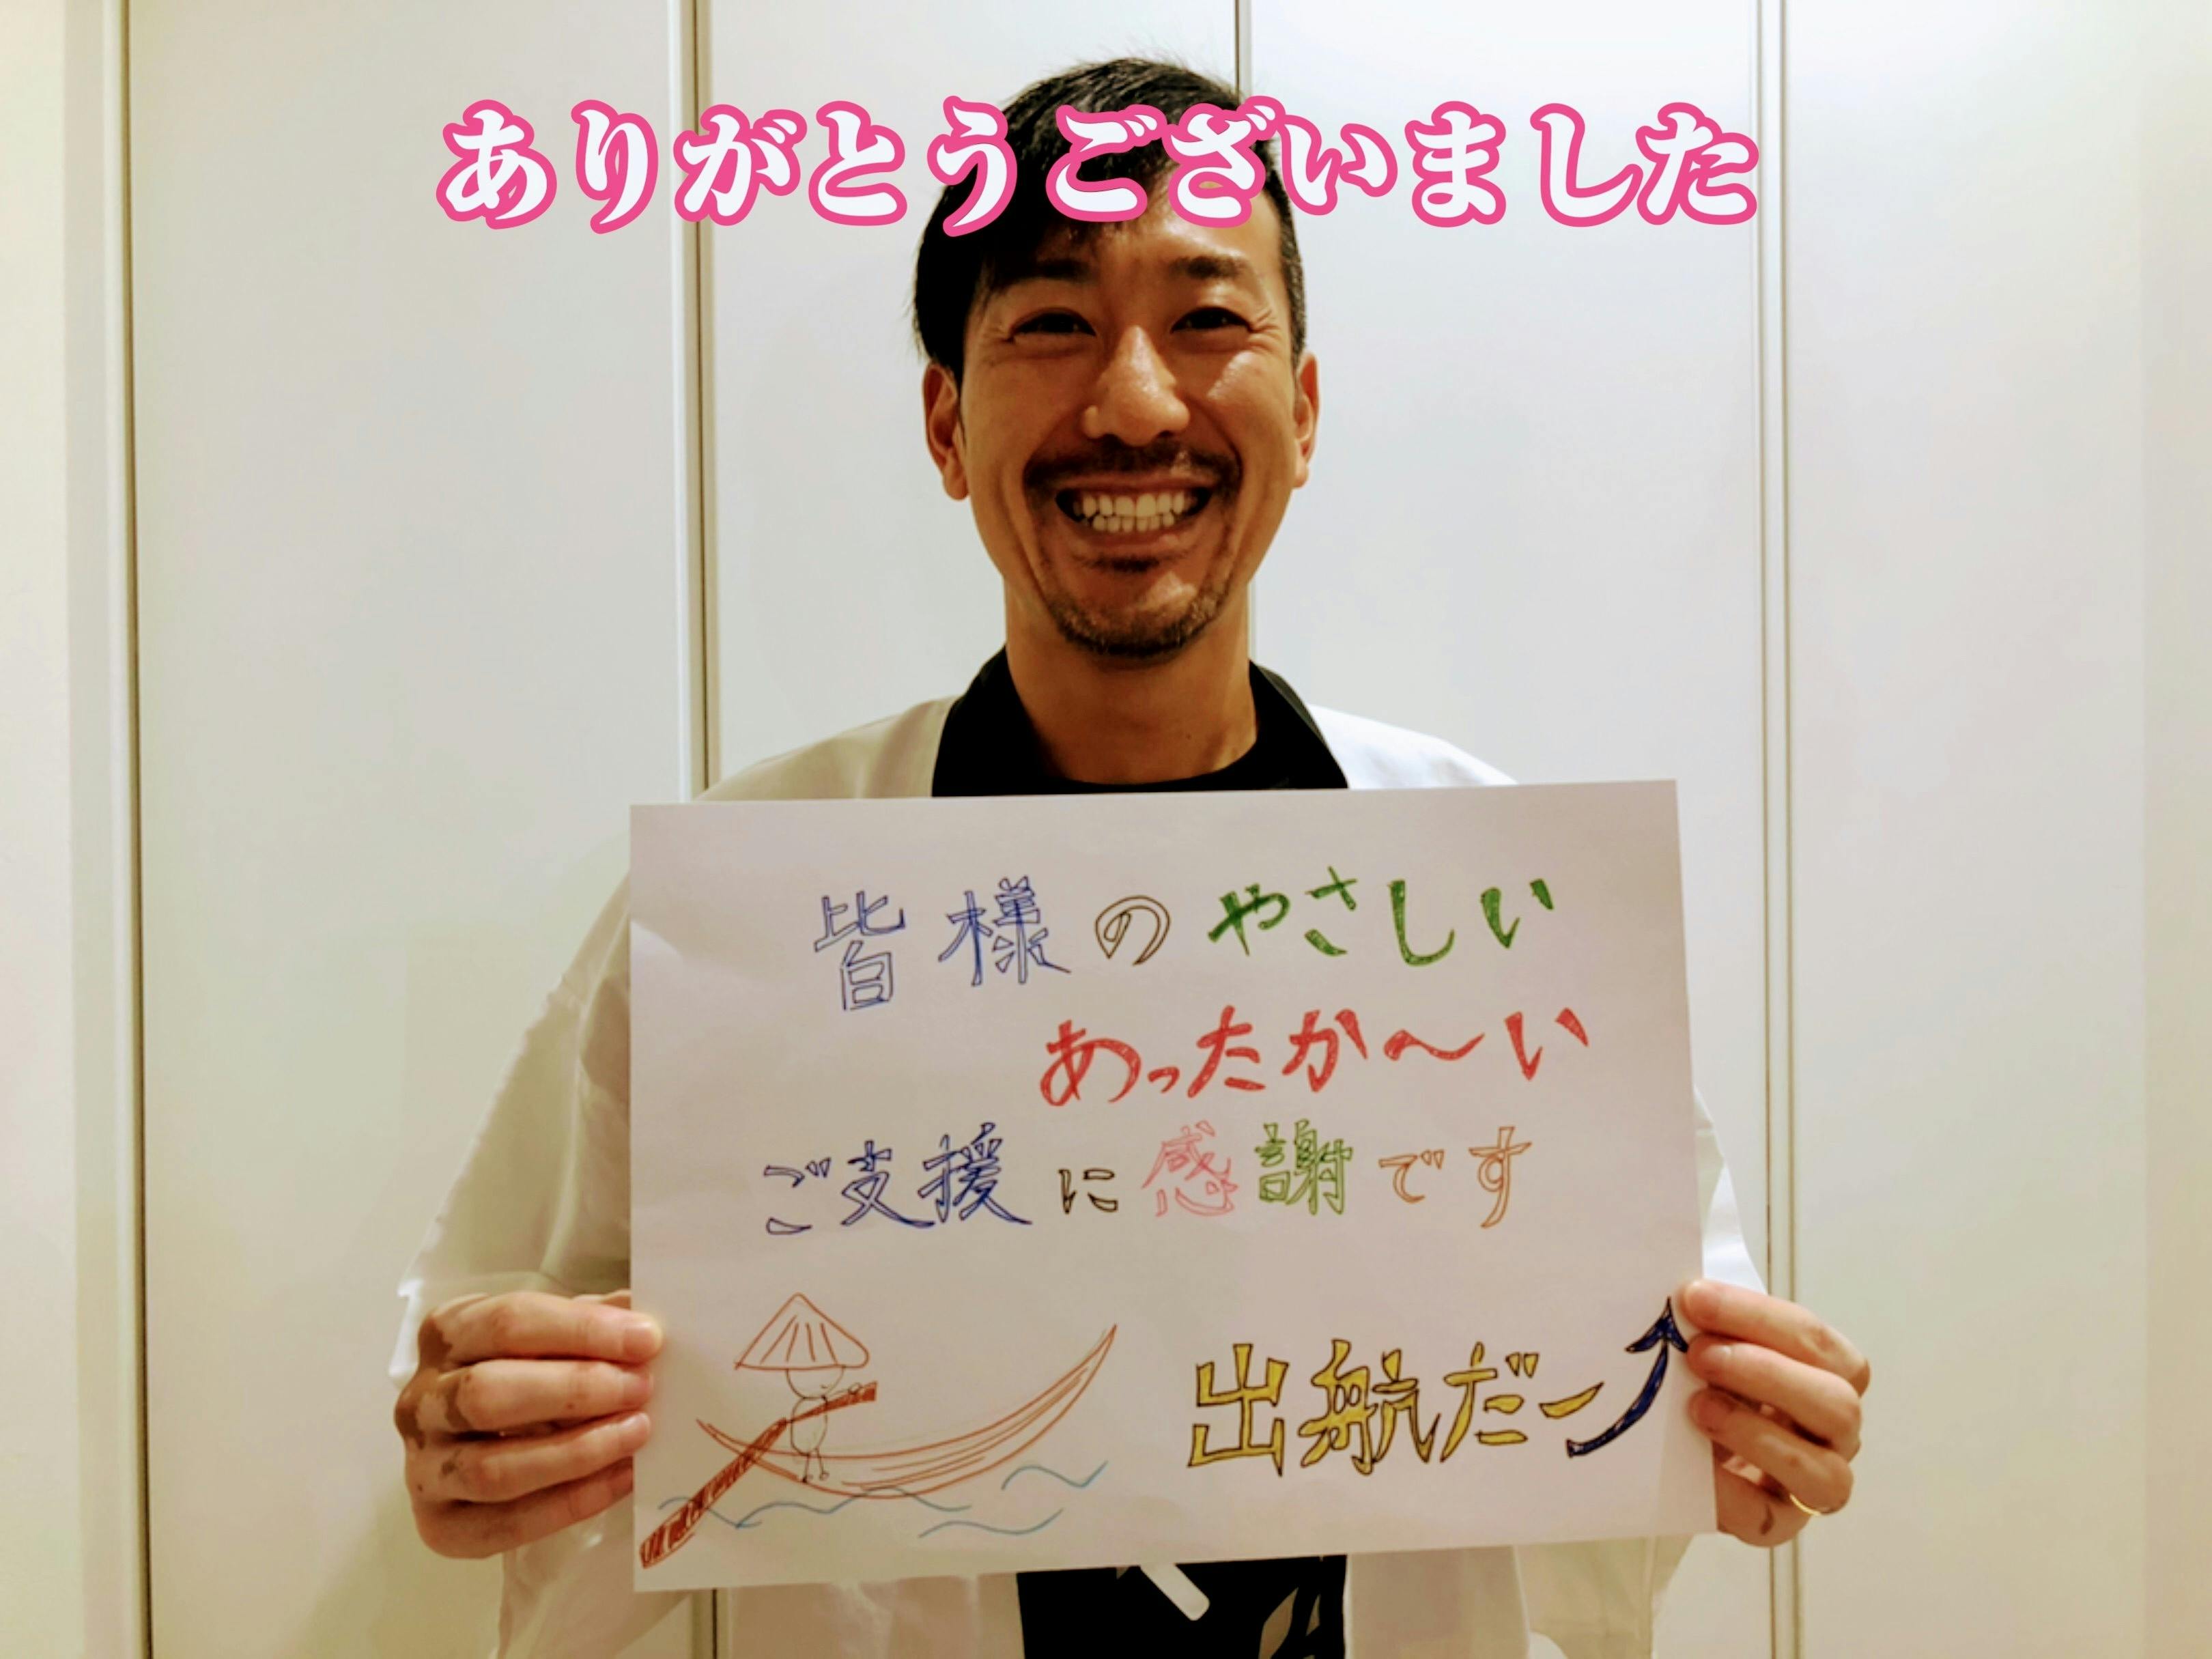 ありがとうございました
皆様のやさしい
あったか〜い
ご支援に感謝です
出航だー